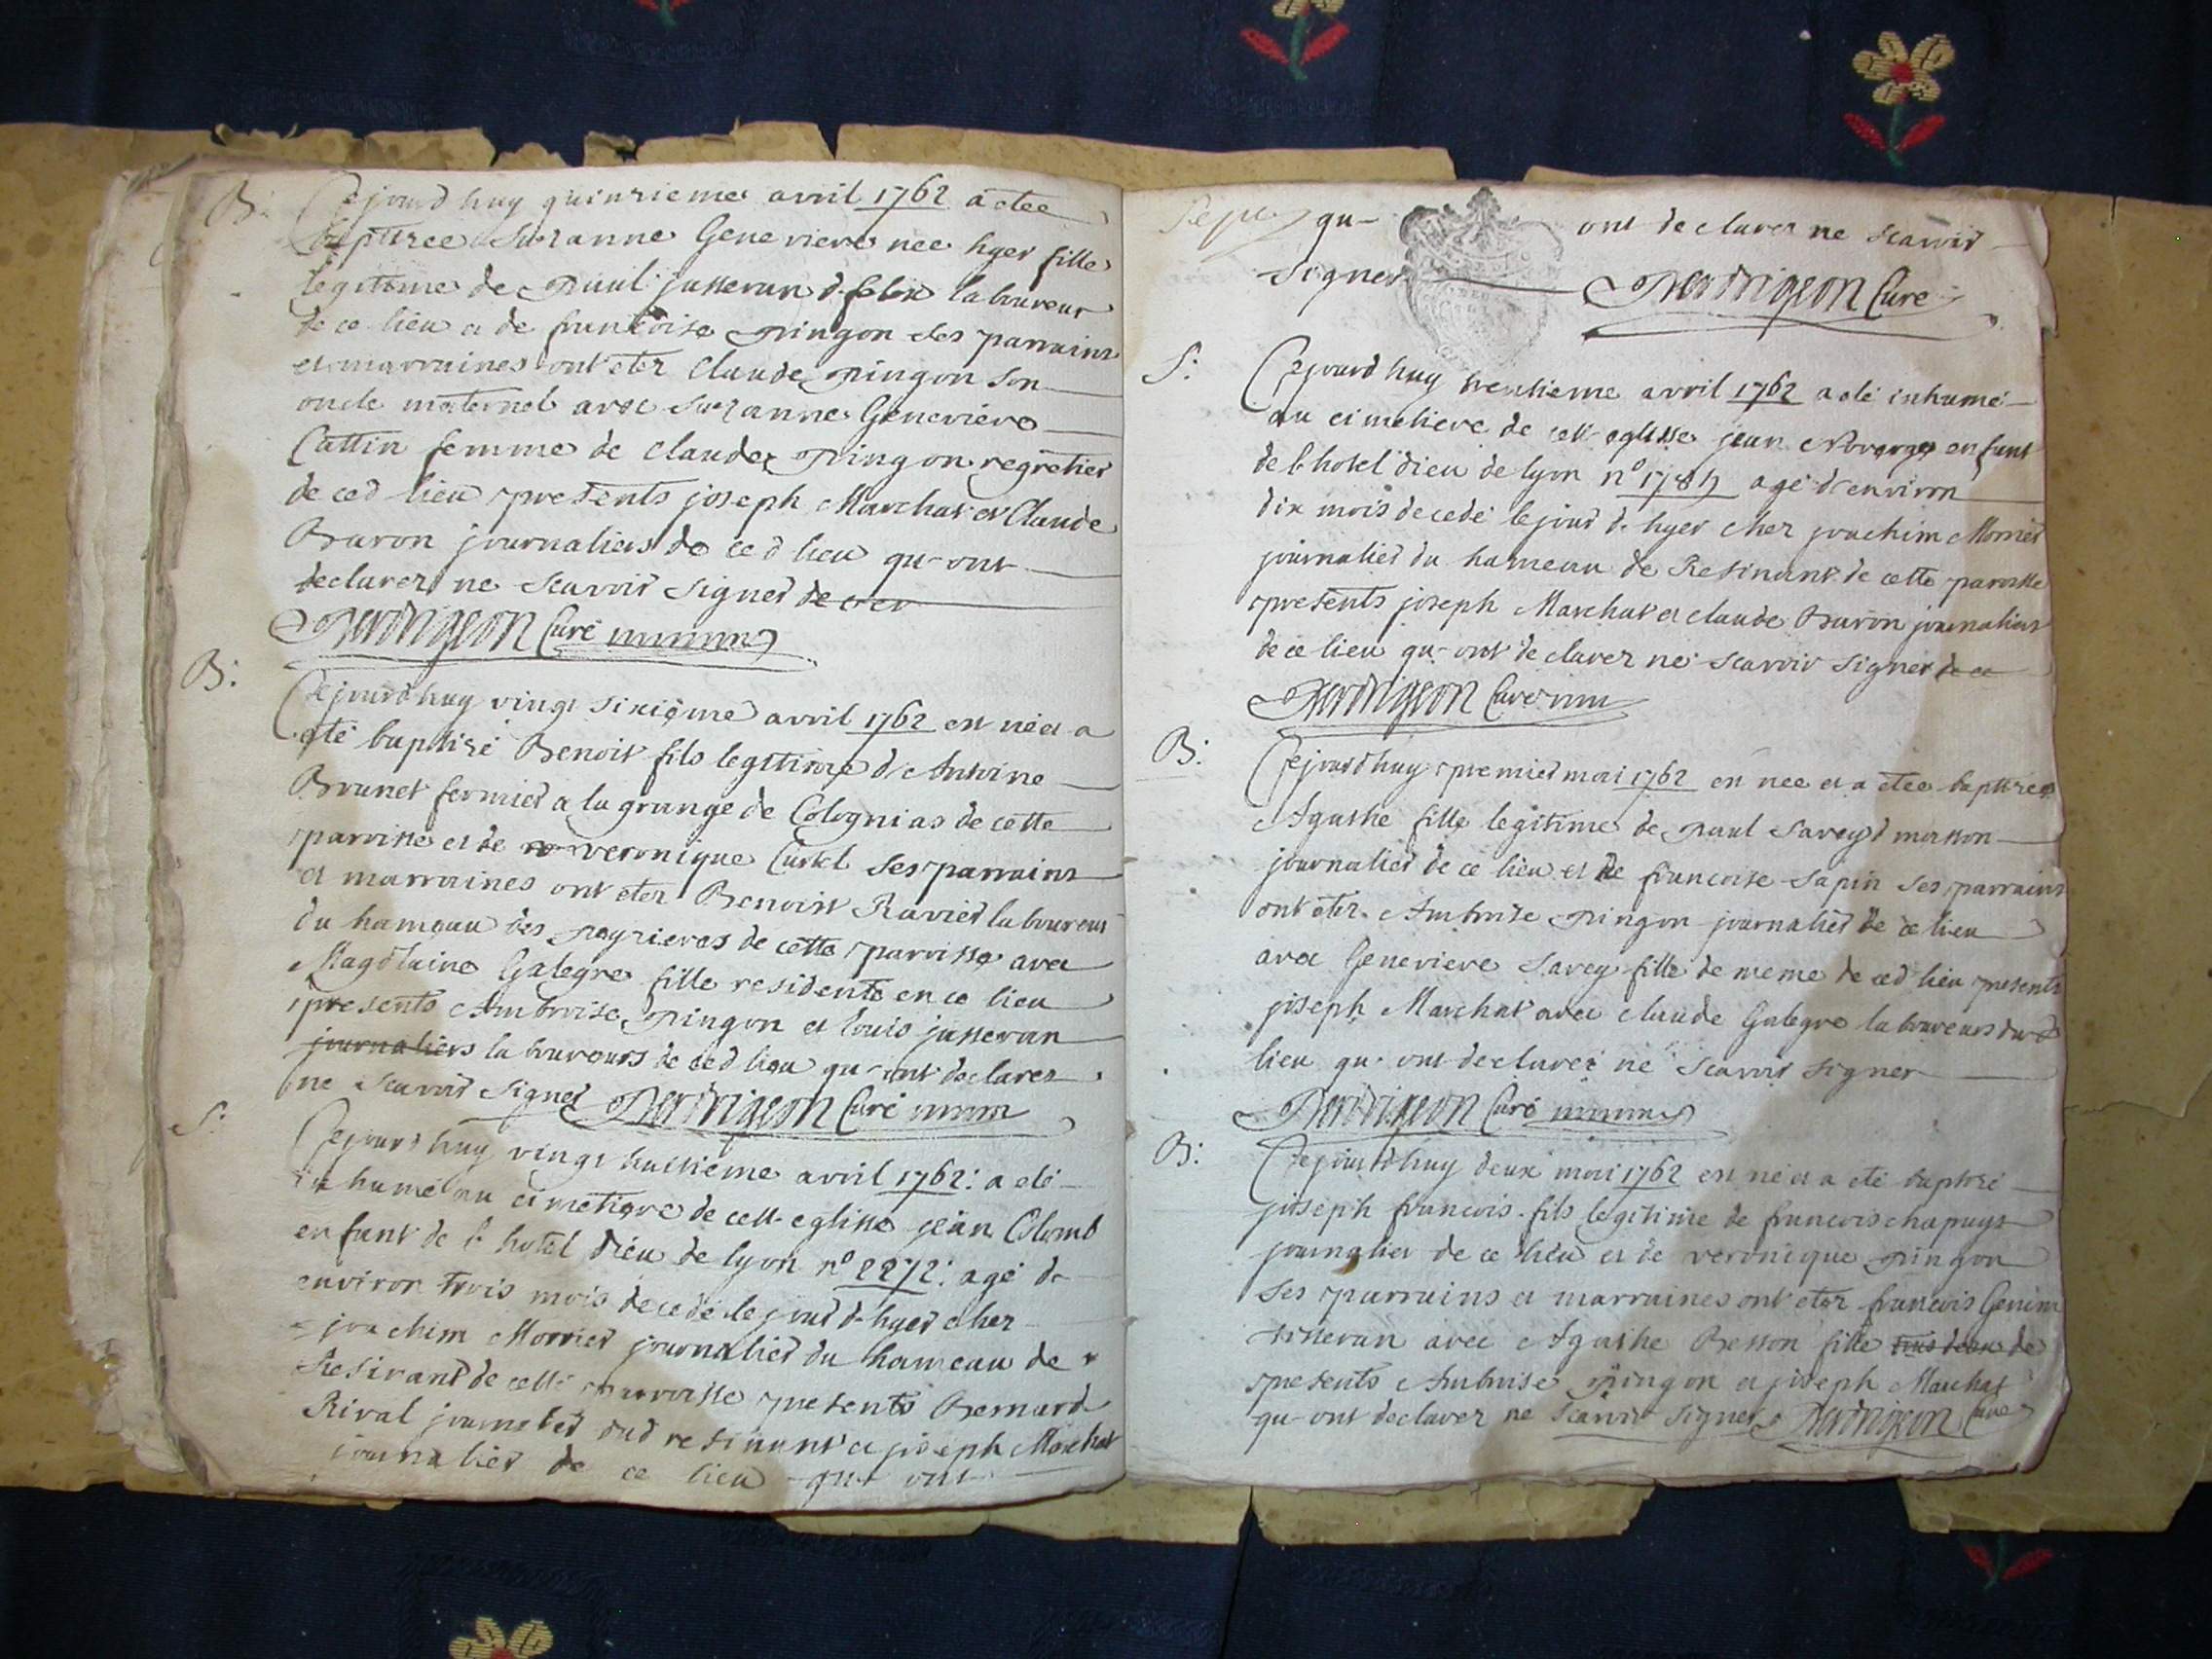 B:
Cejourd huy quinzieme avril 1762 a etee
baptizee Suzanne Genevieve nee hyer fille
legitime de paul jusseran d. felix laboureur
de ce lieu et de francoise pingon ses parrains
et marraines ont eter Claude pingon son
oncle maternel avec Suzanne Genevieve
Cattin femme de claude pingon regretier
de ced lieu presents joseph Marchat et Claude
Buron journaliers de ce d lieu qu-ont
declarer ne scavoir signer
Perdrigeon Curé
B:
Cejourdhuy vingt sixieme avril 1762 est né et a
eté baptisé Benoit fils legitime d'Antoine
Brunet fermier a la grange de Colognias de cette
paroisse et de veronique ses parrains
et marraines ont eter Benoist Ravier laboureur
du hameau des de cette paroisse avec
Magdlaine Galegre fille residente en ce lieu
presents Ambroise pingon et louis jusseran
journaliers laboureurs de ced lieu qu-ont declarer
ne scavoir signer Perdrigeon Curé
S:
Cejourd huy vingt huitieme avril 1762: a eté
inhumé au cimetiere de cett- eglisse jean Colomb
enfant de l- hotel dieu de lyon n° 2272: agé de
environ trois mois decedé le jour d-hyer cher
joachim Morrier journalier du hameau de
Resinant de cette parroisse presents Bernard
Rival journalier dud resinant et joseph Marchat
journalier de ce lieu qu-ont
qu- ont declarer ne scavoir
signer Perdrigeon Curé
S:
Cejourd huy trentieme avril 1762 a eté inhumé
au cimetiere de cett- eglisse jean enfant
de l- hotel dieu de lyon n° agé d'environ
dix mois decedé le jour d- hyer cher joachim Morrier
journalier du hameau de Resinant de cette paroisse
presents joseph Marchat et claude Buron journaliers
de ce lieu qu-ont declarer ne scavoir signer de ce
Perdrigeon Curé
B:
Cejourdhuy premier mai 1762 en nee et a etee baptizee
Agathe fille legitime de paul Savey d masson
journalier de ce lieu et de francoise sapin ses parrains
ont eter Ambroise pingon journalier de ce lieu
avec Genevieve Savey fille de meme de ced lieu presents
joseph Marchat avec claude Galegre laboureurs dud
lieu qu- ont declarer ne scavoir signer
Perdrigeon Curé
B:
Cejourdhuy deux mai 1762 en né et a eté baptizé
joseph francois fils legitime de francois chapuys
journalier de ce lieu et de veronique pingon
ses parrains et marraines ont eter francois Genin
tisseran avec Agathe Besson fille de
presents Ambroise pingon et joseph Marchat
qu-ont declarer ne scavoir signer Perdrigeon Curé